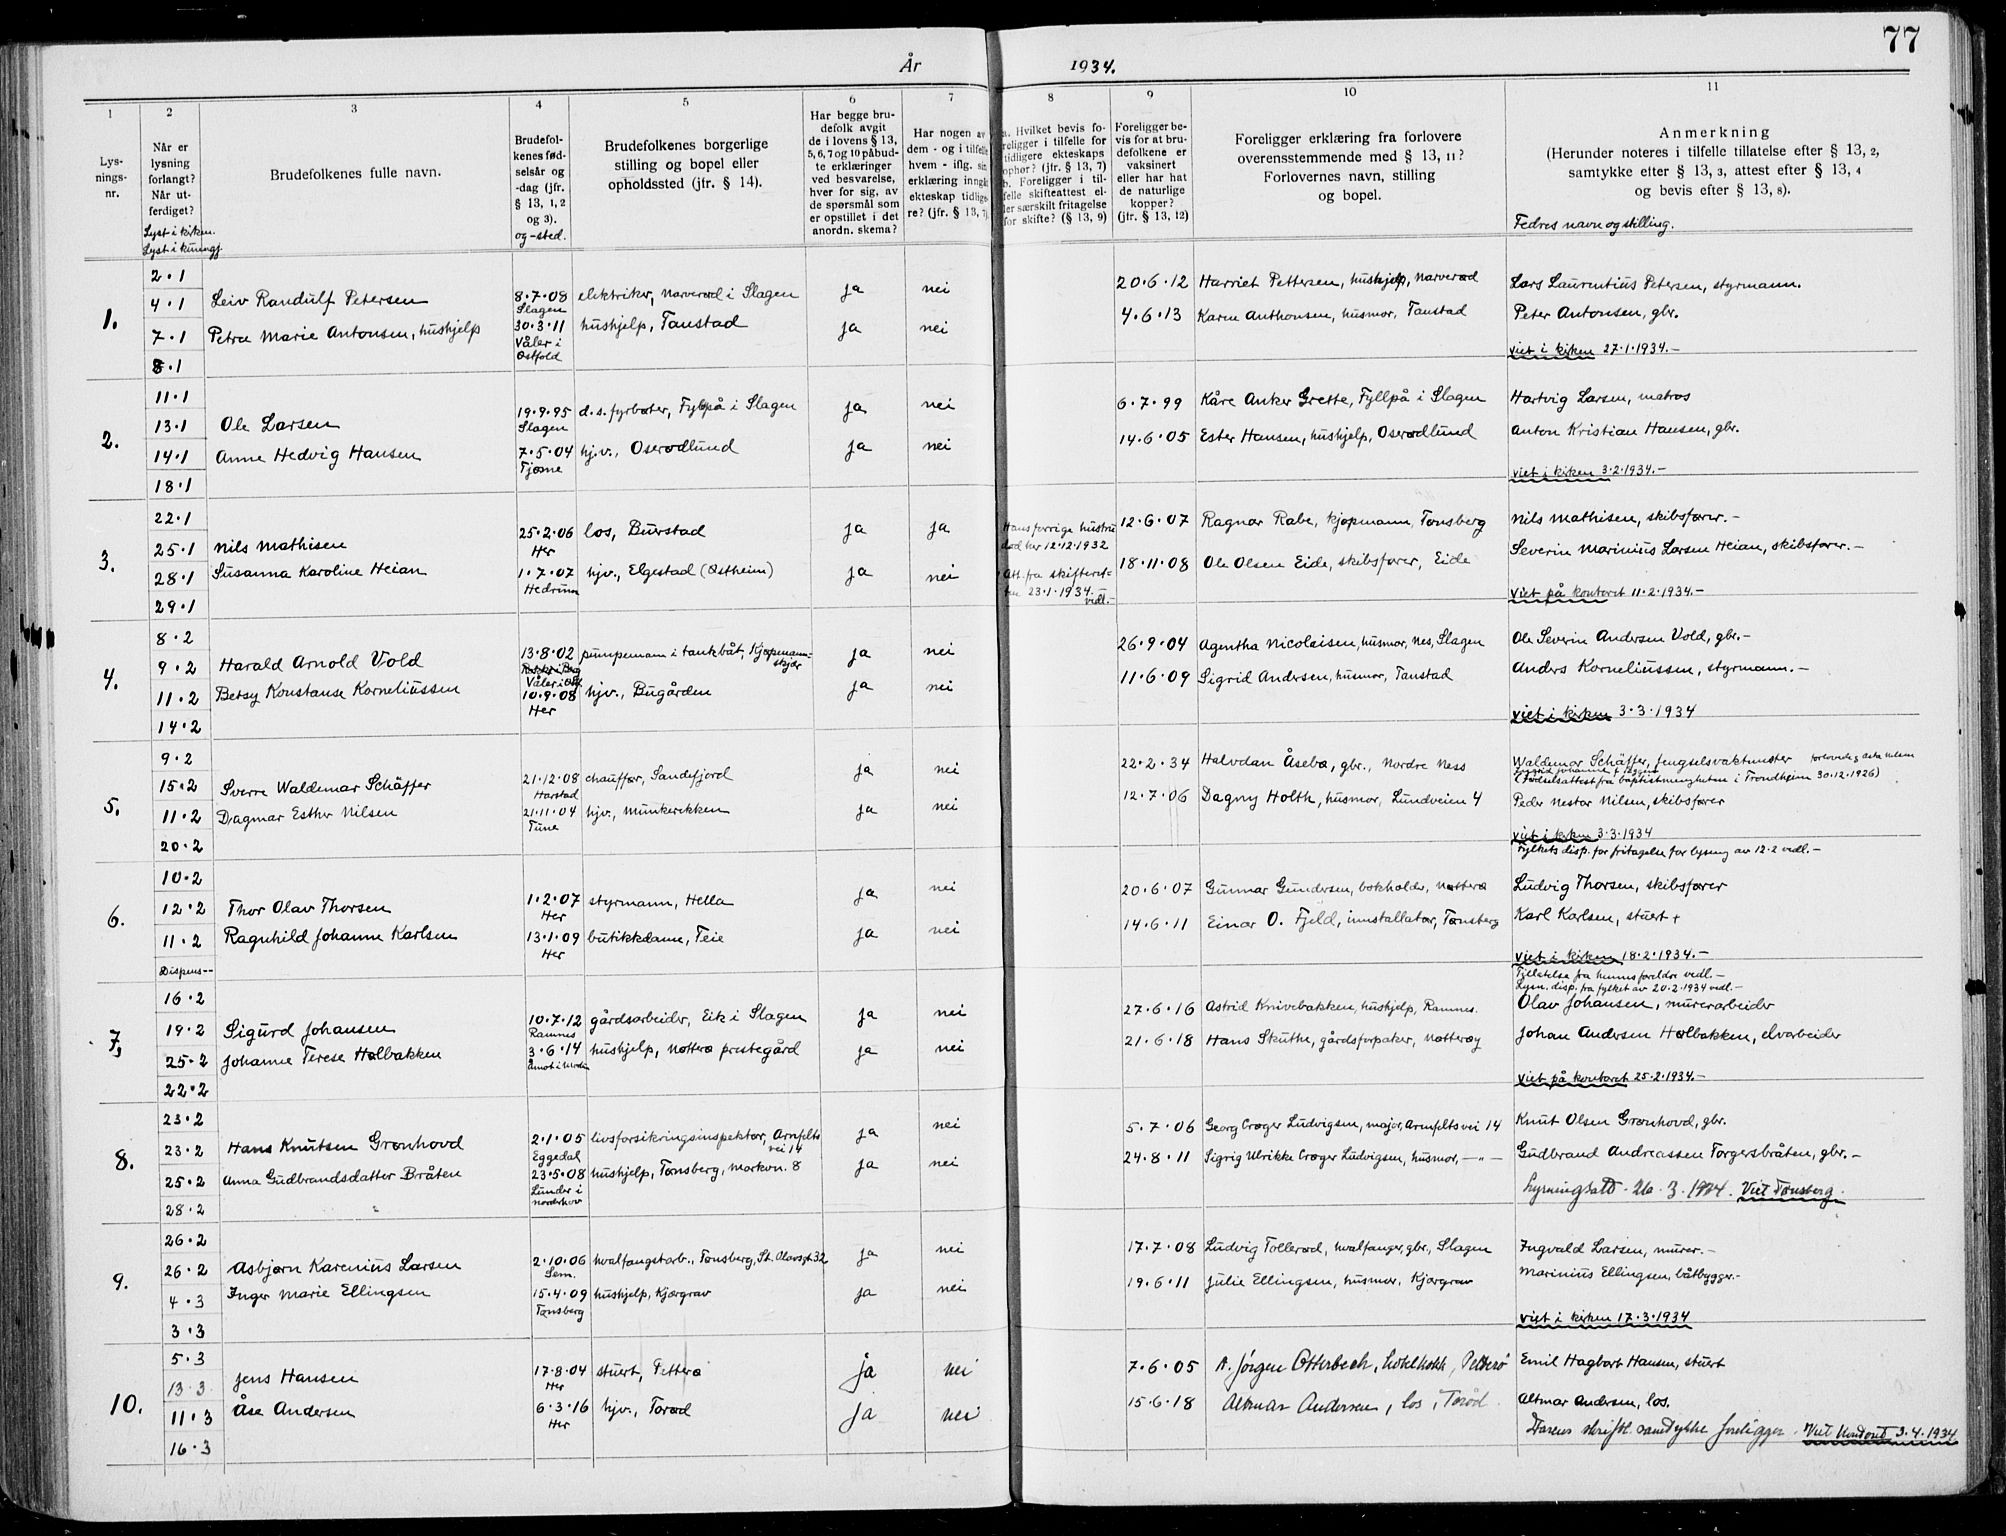 77
År 1934.
1 2 3 4 5 6 7 8 9 10 11
Lys-
nings-
nr.
Når er
lysning
forlangt?
Når ut-
ferdiget?
Lyst i kirken.
Lyst i kunngj.
Brudefolkenes fulle navn.
Brudefol-
kenes fød-
selsår og
-dag (jfr.
§ 13, 1, 2
og 3).
og -sted.
Brudefolkenes borgerlige
stilling og bopel eller
opholdssted (jfr. § 14).
Har begge bru-
defolk avgit
de i lovens § 13,
5, 6, 7 og 10 påbud-
te erklæringer
ved besvarelse,
hver for sig, av
de spørsmål som
er opstillet i det
anordn. skema?
Har nogen av
dem - og i tilfelle
hvem - iflg. sin
erklæring inngått
ekteskap tidlige-
re? (jfr. § 13, 7)
a. Hvilket bevis fo-
religger i tilfelle for
tidligere ekteskaps
ophør? (jfr. § 13, 7)
b. Foreligger i til-
felle skifteattest el-
ler særskilt fritagelse
for skifte? (§ 13, 9)
Foreligger be-
vis for at bru-
defolkene er
vaksinert
eller har hat
de naturlige
kopper?
(jfr. § 13, 12)
Foreligger erklæring fra forlovere
overensstemmende med § 13, 11?
Forlovernes navn, stilling
og bopel.
Anmerkning
(Herunder noteres i tilfelle tillatelse efter § 13, 2,
samtykke efter § 13, 3, attest efter § 13, 4
og bevis efter § 13, 8).
Fedres navn og stilling.
1.
2.1
4.1
7.1
8.1
Leiv Randulf Petersen
Petra Marie Antonsen, hushjelp
8.7.08
Slagen
30.3.11
Våler i
Østfold
elektriker, Narverød i Slagen
hushjelp, Tanstad
ja nei
ja nei
20.6.12
4.6.13
Harriet Pettersen, hushjelp, Narverød
Karen Anthonsen, husmor, Tanstad
Lars Laurentius Petersen, styrmann.
Peter Antonsen, gbr.
Viet i kirken 27.1.1934.-
2.
11.1
13.1
14.1
18.1
Ole Larsen
Anne Hedvig Hansen
19.9.95
Slagen
7.5.04
Tjøme
d.s. fyrbøter, Fyllpå i Slagen
hjv., Oserødlund
ja nei
ja nei
6.7.99
14.6.05
Kåre Anker Grette, Fyllpå i Slagen
Ester Hansen, hushjelp, Oserødlund
Hartvig Larsen, matros
Anton Kristian Hansen, gbr.
Viet i kirken 3.2.1934.-
3.
22.1
25.1
28.1
29.1
Nils Mathisen
Susanna Karoline Heian
25.2.06
Her
1.7.07
Hedrum
los, Burstad
hjv., Elgestad (Østheim)
ja ja
ja nei
Hans forrige hustru
død her 12.12.1932
Att. fra skifteret-
ten 23.1.1934.-
vedl.-
12.6.07
18.11.08
Ragnar Rabe, kjøpmann, Tønsberg
Ole Olsen Eide, skibsfører, Eide
Nils Mathisen, skibsfører.-
Severin Marinius Larsen Heian, skibsfører.-
Viet på kontoret 11.2.1934.-
4.
8.2
9.2
11.2
14.2
Harald Arnold Vold
Betsy Konstanse Korneliussen
13.8.02
Våler i Østf.
10.9.08
Her
pumpemann i tankbåt, Kjøpmann-
skjær
hjv., Bugården
ja nei
ja nei
26.9.04
11.6.09
Agentha Nicolaisen, husmor, Nes, Slagen
Sigrid Andersen, husmor, Tanstad
Ole Severin Andersen Vold, gbr.-
Anders Korneliussen, styrmann.-
Viet i kirken 3.3.1934
5.
9.2
15.2
11.2
20.2
Sverre Waldemar Schäffer
Dagmar Esther Nilsen
21.12.08
Harstad
21.11.04
Tune
chauffør, Sandefjord
hjv., Munkerekken
ja nei
ja nei
22.2.34
12.7.06
Halvdan Åsebø, gbr., Nordre Ness
Dagny Holth, husmor, Lundveien 4
Waldemar Schäffer, fengselsvaktmester
(Fødselsattest fra baptistmenigheten i Trondheim 30.12.1926)
Peder Nestor Nilsen, skibsfører
Viet i kirken 3.3.1934
6.
10.2
12.2
11.2
Dispens--
Thor Olav Thorsen
Ragnhild Johanne Karlsen
1.2.07
Her
13.1.09
Her
styrmann, Hella
butikkdame, Teie
ja nei
ja nei
20.6.07
14.6.11
Gunnar Gundersen, bokholder, Nøtterø
Einar O. Fjeld, innstallatør, Tønsberg
Fylkets disp. for fritagelse for lysing av 12.2 vedl.-
Ludvig Thorsen, skibsfører
Karl Karlsen, stuert +
Viet i kirken 18.2.1934.-
7.
16.2
19.2
25.2
22.2
Sigurd Johansen
Johanne Terese Hølbakken
10.7.12
Ramnes
3.6.14
Åmot i Modum
gårdsarbeider, Eik i Slagen
hushjelp, Nøtterø prestegård
ja nei
ja nei
27.6.16
21.6.18
Astrid Knivebakken, hushjelp, Ramnes.
Hans Skuthe, gårdsforpakter, Nøtterøy
Tillatelse fra hennes foreldre vedl.-
Lysn. disp. fra fylket av 20.2.1934 vedl.-
Olav Johansen, murerarbeider
Johan Andersen Hølbakken, elvarbeider
Viet på kontoret 25.2.1934.-
8.
23.2
23.2
25.2
28.2
Hans Knutsen Grønhovd
Anna Gudbrandsdatter Bråten
2.1.05
Eggedal
23.5.08
Lunder i
Norderhov
livsforsikringsinspektør, Arnfelts
vei 14
hushjelp, Tønsberg, Markvn. 8
ja nei
ja nei
5.7.06
24.8.11
Georg Crøger Ludvigsen, major, Arnfelts vei 14
Sigrig Ulrikke Crøger Ludvigsen, husmor, —"—
Knut Olsen Grønhovd, gbr.
Gudbrand Andreassen Torgersbråten, gbr.-
Lysningsatt. 26.3.1934. Viet Tønsberg.
9.
26.2
26.2
4.3
3.3
Asbjørn Karenius Larsen
Inger Marie Ellingsen
2.10.06
Sem.
15.4.09
Tønsberg
hvalfangstarb., Tønsberg, St. Olavsgt 32
hushjelp, Kjørgrav
ja nei
ja nei
17.7.08
19.6.11
Ludvig Tollerød, hvalfanger, gbr., Slagen
Julie Ellingsen, husmor, Kjørgrav
Ingvald Larsen, murer.-
Marinius Ellingsen, båtbygger.-
Viet i kirken 17.3.1934
10.
5.3
13.3
11.3
16.3
Jens Hansen
Åse Andersen
17.8.04
Her
6.3.16
Her
stuert, Petterø
hjv., Torød
ja nei
ja nei
7.6.05
15.6.18
A. Jørgen Otterbech, hotelkokk, Petterø
Altmar Andersen, los, Torød.
Emil Hagbart Hansen, stuert
Altmar Andersen, los.
Farens skriftl. samtykke foreligger. Viet Kontoret 3.4.1934